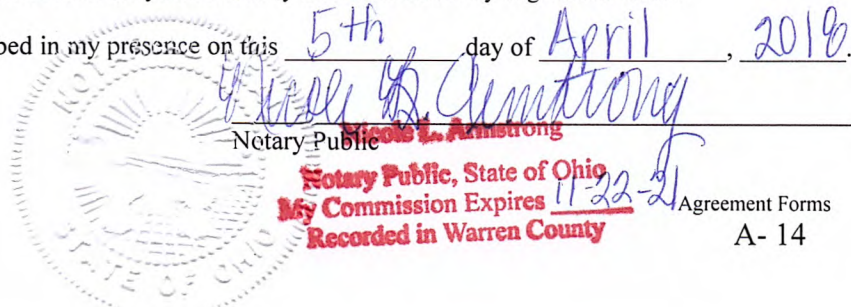 bed in my presence on this 5th day of April, 2018.
Nicole L. Armstrong
Notary Public
Nicole L. Armstrong
Notary Public, State of Ohio
My Commission Expires 11-22-21
Recorded in Warren County
Agreement Forms
A- 14
STATE OF OHIO